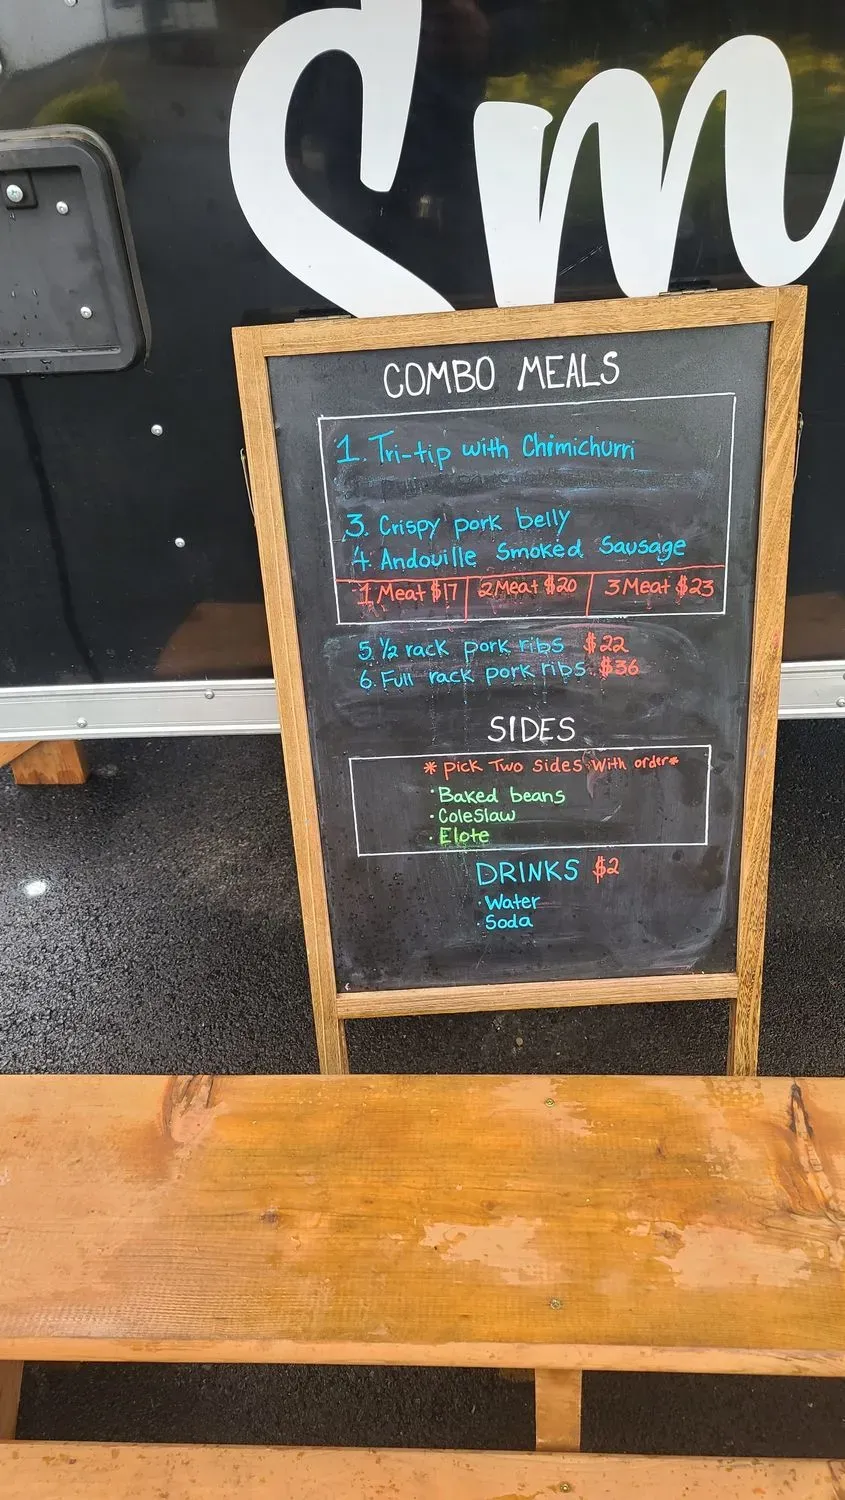 Sm
COMBO MEALS
1. Tri-tip with Chimichurri
3. Crispy pork belly
4. Andouille Smoked Sausage
1 Meat $17 2 Meat $20 3 Meat $23
5. 1/2 rack pork ribs $22
6. Full rack pork ribs $36
SIDES
* pick Two sides with order*
· Baked beans
· Coleslaw
· Elote
DRINKS $2
· Water
· Soda